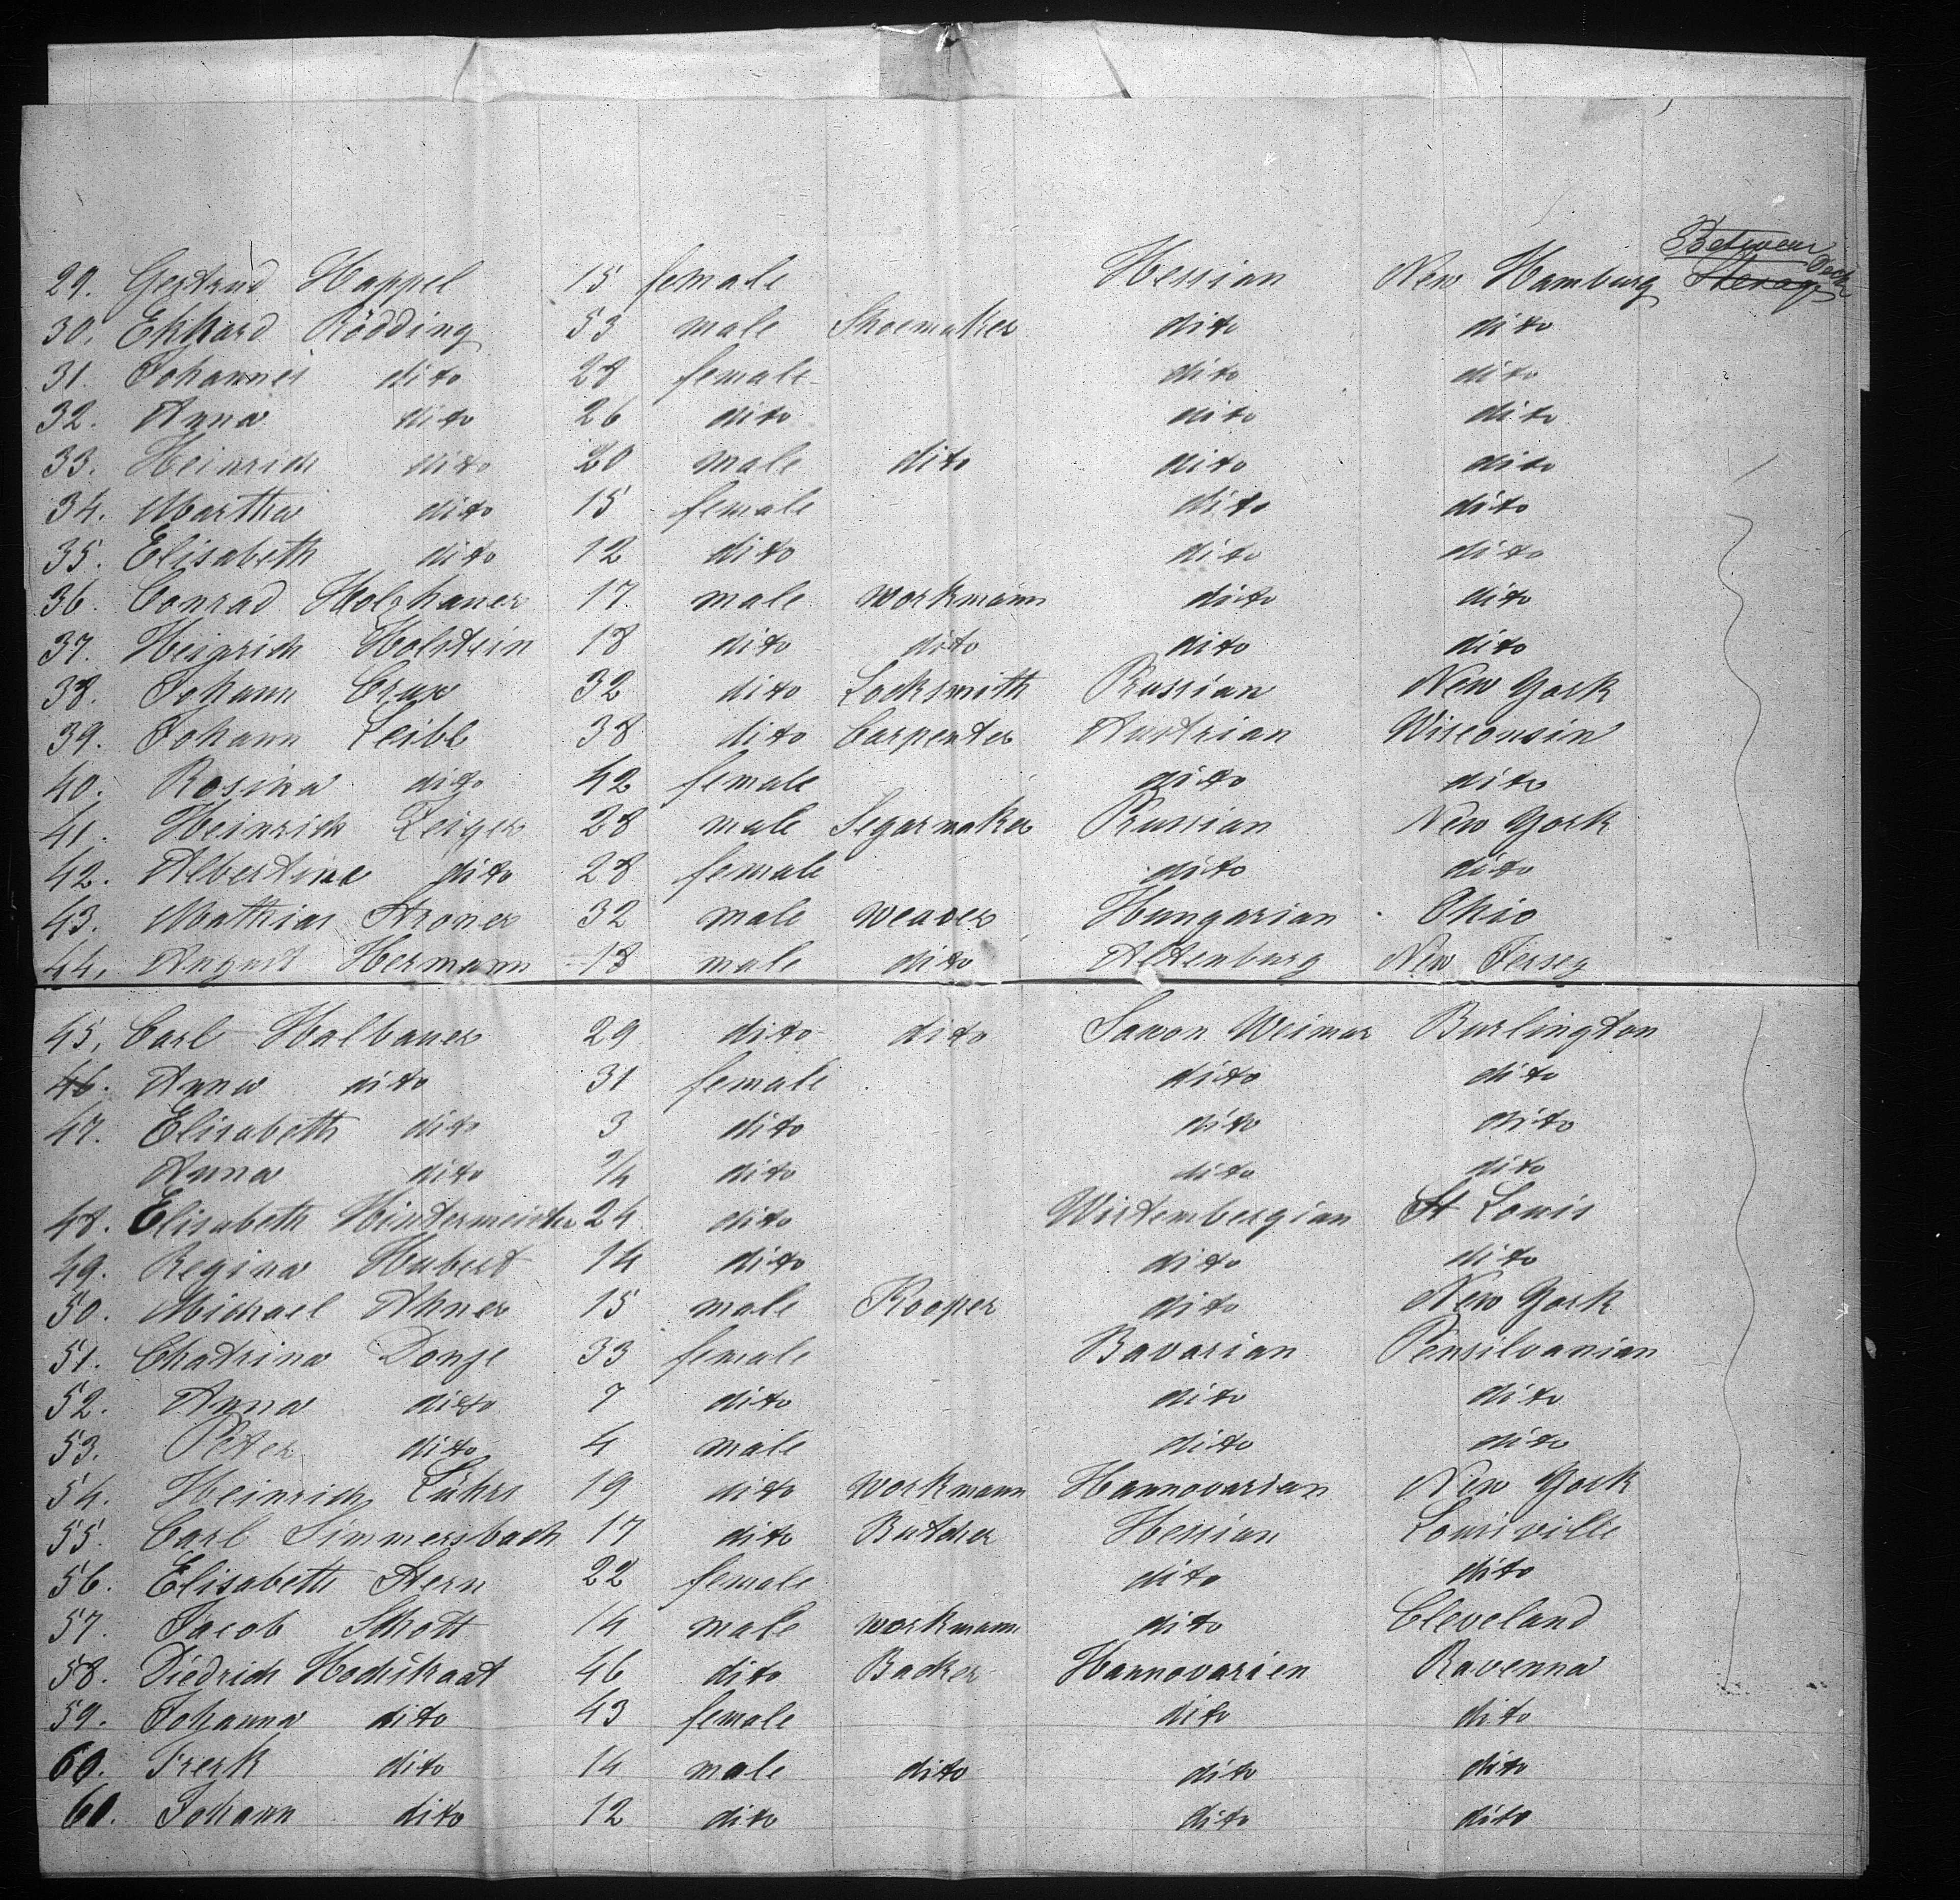 Between Deck
29. Gertrud Happel 15 female Hessian New Hamburg Sterage
30. Ekhard Rödding 53 male Shoemaker dito dito
31. Johannes dito 28 female dito dito
32. Anna dito 26 dito dito dito
33. Heinrich dito 20 male dito dito dito
34. Martha dito 15 female dito dito
35. Elisabeth dito 12 dito dito dito
36. Conrad Holzhauer 17 male workmann dito dito
37. Heinrich Holstein 18 dito dito dito dito
38. Johann Crux 32 dito Locksmith Prussian New York
39. Johann Leibl 38 dito Carpenter Austrian Wisconsin
40. Rosina dito 42 female dito dito
41. Heinrich Zeiger 28 male Segarmaker Prussian New York
42. Albertine dito 28 female dito dito
43. Mathias Stroner 32 male weaver Hungarian Ohio
44. August Hermann 18 male dito Altenburg New Jersey
45. Carl Halbauer 29 dito dito Saxon Weimar Burlington
46. Anna dito 31 female dito dito
47. Elisabeth dito 3 dito dito dito
Anna dito dito dito dito
48. Elisabeth Hintermeister 24 dito Wirtembergian St Louis
49. Regina Hubert 14 dito dito dito
50. Michael Ahner 15 male Kooper dito New York
51. Chatrina Donze 33 female Bavarian Pensilvanian
52. Anna dito 7 dito dito dito
53. Peter dito 4 male dito dito
54. Heinrich Lührs 19 dito workmann Hannovarian New York
55. Carl Simmersbach 17 dito Butcher Hessian Louisville
56. Elisabeth Stern 22 female dito dito
57. Jacob Schott 14 male workmann dito Cleveland
58. Diedrich Hochstraat 46 dito Backer Hannovarien Ravenna
59. Johanna dito 43 female dito dito
60. Frerk dito 14 male dito dito dito
60. Johann dito 12 dito dito dito